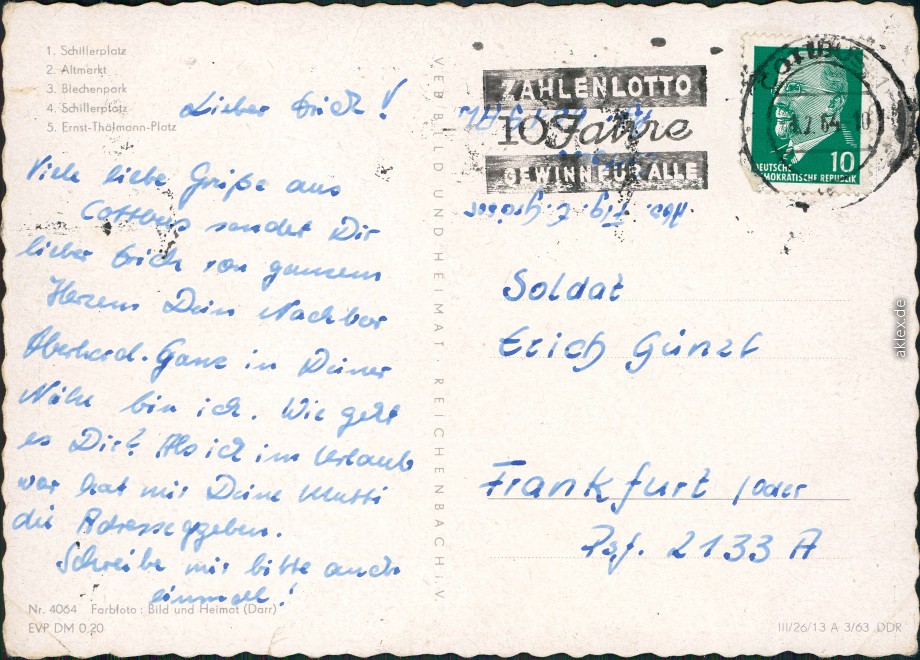 1. Schillerplatz
2. Altmarkt
3. Blechenpark
4. Schillerplatz
5. Ernst-Thälmann-Platz
Lieber Erich!
Viele liebe Grüße aus
Cottbus sendet Dir
lieber Erich von ganzem
Herzen Dein Nachbar
Eberhard. Ganz in Deiner
Nähe bin ich. Wie geht
es Dir? Als ich im Urlaub
war hat mir Deine Mutti
die Adresse gegeben.
Schreibe mir bitte auch
einmal!
Nr. 4064 Farbfoto: Bild und Heimat (Darr)
EVP DM 0.20
VEB BILD UND HEIMAT REICHENBACH i. V.
ZAHLENLOTTO
10 Jahre
GEWINN FÜR ALLE
COTTBUS
10
DEUTSCHE
DEMOKRATISCHE REPUBLIK
Abs. Flg. E.
Soldat
Erich Günzl
Frankfurt / Oder
Psf. 2133 A
III/26/13 A 3/63 DDR
aklex.de